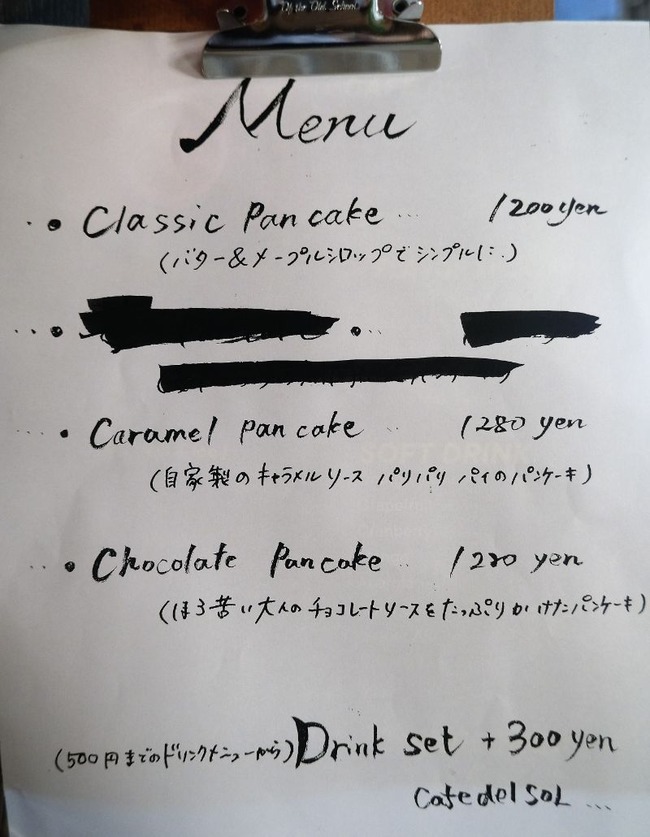 Of the Old School
Menu
Classic Pancake 1200yen
(バター&メープルシロップでシンプルに..)
Caramel pancake 1280 yen
(自家製のキャラメルソース パリパリ パイのパンケーキ)
Chocolate Pancake 1220 yen
(ほろ苦い大人のチョコレートソースをたっぷりかけたパンケーキ)
(500円までのドリンクメニューから) Drink set + 300 yen
Cafe del SoL ...